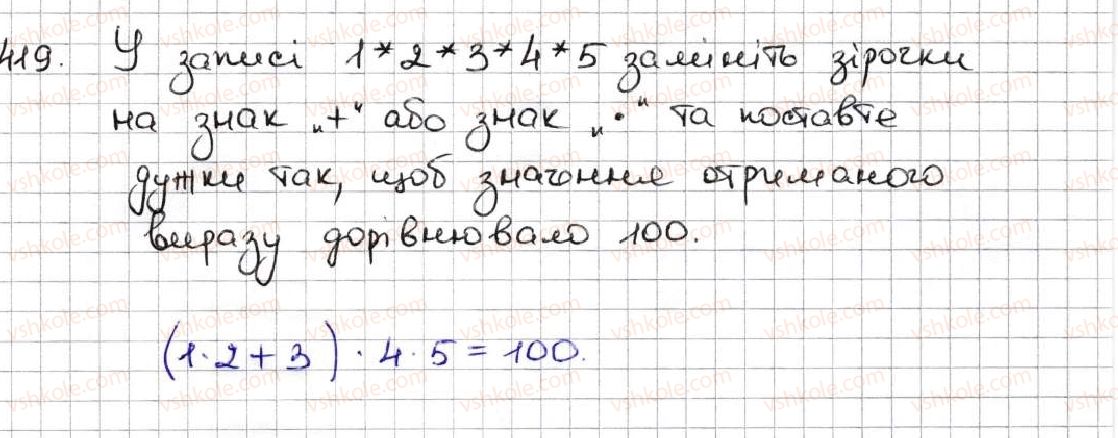 419. У записі 1*2*3*4*5 замініть зірочки
на знак „+" або знак „·" та поставте
дужки так, щоб значення отриманого
виразу дорівнювало 100.
(1·2+3)·4·5=100.